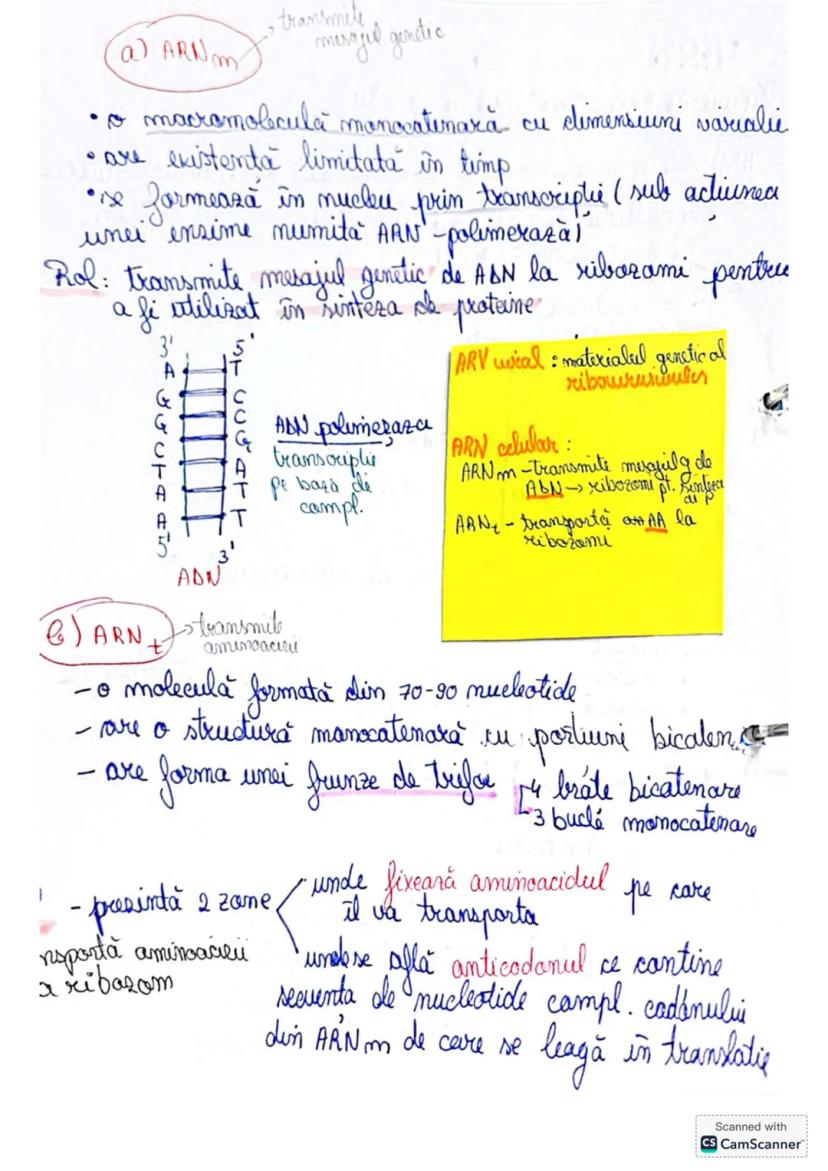 a) ARNm
transmite
mesajul genetic
• o macromoleculă monocatenară cu dimensiuni variabile
• are existență limitată în timp
• se formează în nucleu prin transcripție (sub acțiunea
unei enzime numită ARN-polimerază)
Rol: transmite mesajul genetic de ADN la ribozomi pentru
a fi utilizat în sinteza de proteine
3' 5'
A T
G C
G C
C G
T A
A T
A T
5' 3'
ADN
ADN polimeraza
transcripție
pe bază de
compl.
ARV viral: materialul genetic al
ARN celular:
ARNm - transmite mesajul g de
ADN → ribozomi pt. sinteza
de p
ARNt - transportă AA la
ribozomi
b) ARNt
transmite
aminoacizii
- o moleculă formată din 70-90 nucleotide
- are o structură monocatenară cu porțiuni bicaten
- are forma unei frunze de trifoi
4 brațe bicatenare
3 bucle monocatenare
- prezintă 2 zone
unde fixează aminoacidul pe care
îl va transporta
unde se află anticodonul ce conține
secvența de nucleotide compl. codonului
din ARNm de care se leagă în translație
nsportă aminoacizii
a ribozom
Scanned with
CS CamScanner